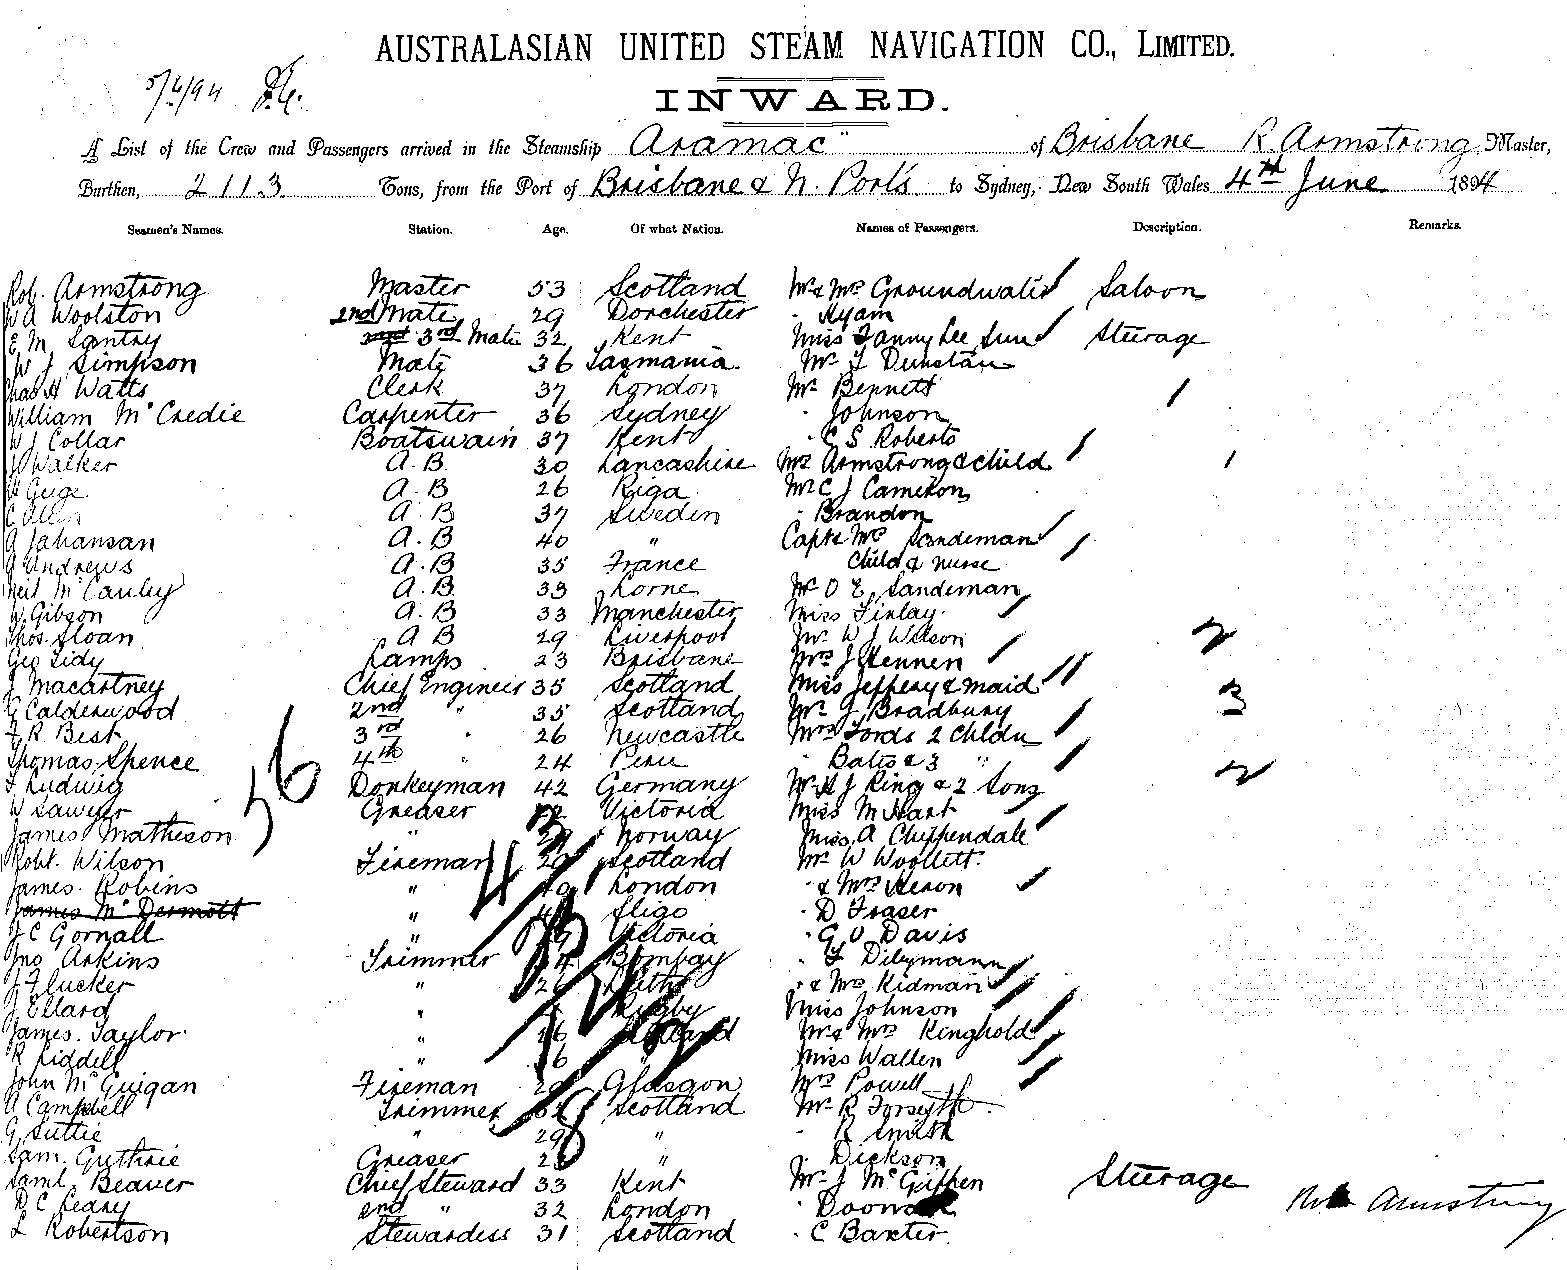 AUSTRALASIAN UNITED STEAM NAVIGATION CO., LIMITED.
5/6/94
INWARD.
A List of the Crew and Passengers arrived in the Steamship Aramac" of Brisbane R. Armstrong, Master,
Burthen, 2113 Tons, from the Port of Brisbane & N. Ports to Sydney, New South Wales 4th June 1894
Seamen's Names. Station. Age. Of what Nation. Names of Passengers. Description. Remarks.
Rob. Armstrong Master 53 Scotland Mr & Mrs Groundwater Saloon
W A Woolston 2nd Mate 29 Dorchester " Ryam
E M Santry 3rd Mate 32 Kent Miss Fanny Lee Sun Steerage
W J Simpson Mate 36 Tasmania Mr F Dunstan
Chas H Watts Clerk 37 London Mr Bennett
William McCredie Carpenter 36 Sydney " Johnson
W J Collar Boatswain 37 Kent " C S Roberts
J Walker A.B. 30 Lancashire Mrs Armstrong & Child
Geige A.B 26 Riga Mr C J Cameron
C Allen A.B 37 Sweden " Brandon
A Johansan A.B 40 " Capt & Mrs Sandeman
A Andrews A.B 35 France Child & Nurse
Neil McCauley A.B. 33 Lorne Mr O E Sandeman
W. Gibson A.B 33 Manchester Miss Finlay
Thos. Sloan A B 29 Liverpool Mr W J Wilson 2
Geo Tidy Lamps 23 Brisbane Mrs J Hennen
J Macartney Chief Engineer 35 Scotland Miss Jeffery & Maid
G Calderwood 2nd " 35 Scotland Mr J Bradbury 3
F R Best 3rd " 26 Newcastle Mrs Fords 2 Childn
Thomas Spence 4th " 24 Peru " Bates & 3 "
F Ludwig Donkeyman 42 Germany Mr H J Ring & 2 Sons 2
W Sawyer Greaser Victoria Miss M Hart
James Matheson " Norway Miss A Chippendale
Robt. Wilson Fireman 29 Scotland Mr W Woollett
James. Robins " London " & Mrs Heron
James McDermott " Sligo " D Fraser
J C Gornall " Victoria " G V Davis
Jno Arkins Trimmer Bombay
J Flucker " 26 Leith " & Mrs Kidman
J Ellard " Rugby Miss Johnson
James. Taylor " Mr & Mrs Kinghold
R Liddell " Miss Wallen
John McGuigan Fireman Glasgow Mrs Powell
A Campbell Trimmer Scotland Mr R Forsyth
G Suttie " 29 " " R Smith
Sam. Guthrie Greaser " " Dickson
Saml. Beaver Chief Steward 33 Kent Mr J McGiffen Steerage
D C Leary 2nd " 32 London
L Robertson Stewardess 31 Scotland " C Baxter
56
Armstrong